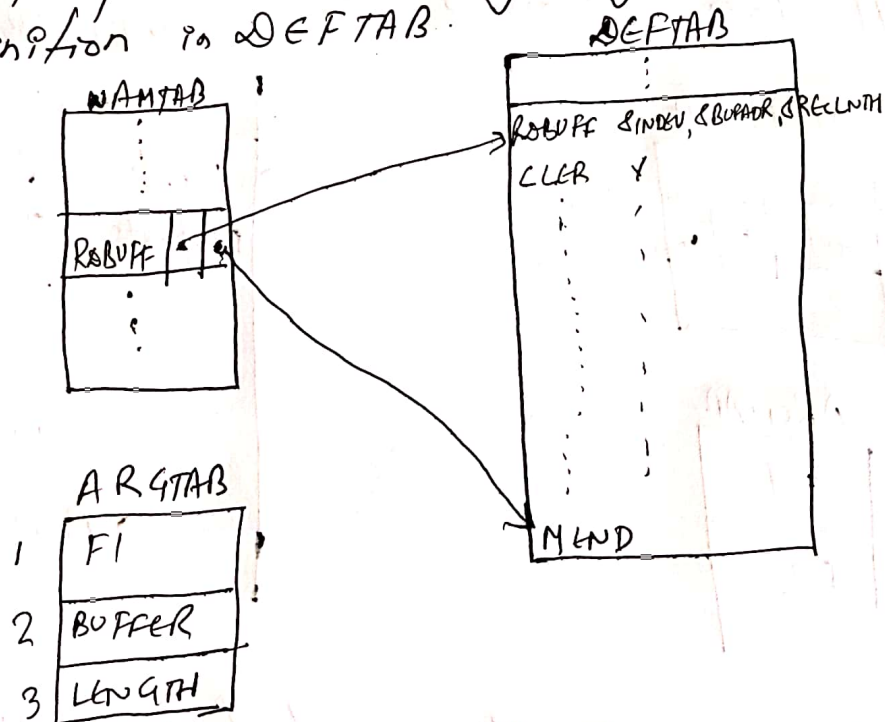 nition in DEFTAB.
NAMTAB
DEFTAB
RDBUFF &INDEV, &BUFADR, &RECLNTH
CLER X
RDBUFF
ARGTAB
1 F1
2 BUFFER
3 LENGTH
MEND